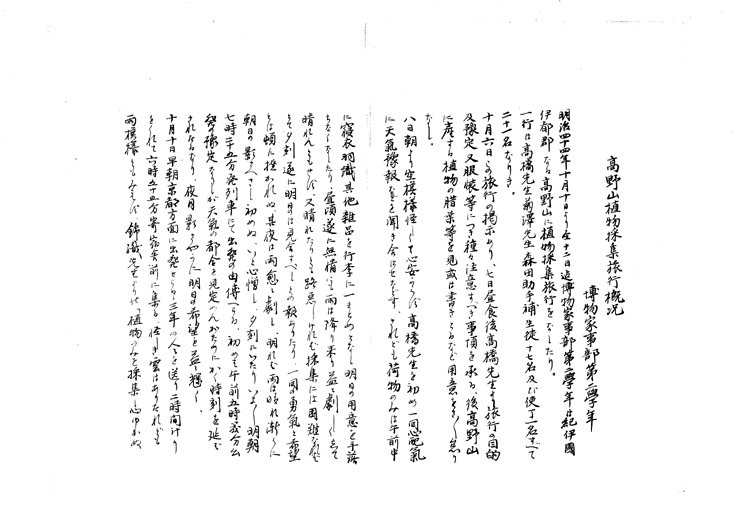 高野山植物採集旅行概況
博物家事部第二學年
明治四十四年十月十日より仝十二日迄博物家事部第二學年は紀伊國
伊都郡なる高野山に植物採集旅行をなしたり。
一行は高橋先生菊澤先生森田助手補生徒十七名及び使丁一名すべて
二十一名なりき。
十月六日この旅行の掲示あり、七日昼食後高橋先生より旅行の目的
及豫定又服装等につき種々注意すべき事項を承る、後高野山
に産する植物の腊葉等を見或は書きとるなど用意
なし。
八日朝より空模様怪しくして心安からねば高橋先生を初め一同心配氣
に天氣豫報などを聞き合はせなどす されども荷物のみは午前中
に寝衣羽織其他雑品を行李に一まとめとなし明日の用意を手落
ちなくしたり、昼頃遂に無情にも雨は降り来り益々劇しく
晴れんともせねば 又晴れたりとも路悪しければ採集には困難なれば
とて夕刻遂に明日は見合すべしとの報ありたり 一同の勇氣と希望
とは頓に挫かれぬ其夜は雨愈々劇し、明れば雨は晴れ漸くに
朝日の影さへさし初めぬ、いと心憎し、夕刻にいたりいよいよ明朝
七時二十五分発列車にて出発の由傳へらる、初めは午前五時
発の豫定なりしが天氣の都合を見定めんがためにかく時刻を延ば
されたるなり、夜月影さやかに明日の希望を益々輝く、
十月十日早朝京都方面に出発せらるゝ三年の人々を送り二時間計り
をくれて六時五十五分寄宿舎前に集る 怪しき雲はありたれども
雨模様ともみえねば 錦織先生よりは、植物のみを採集し心ゆかぬ